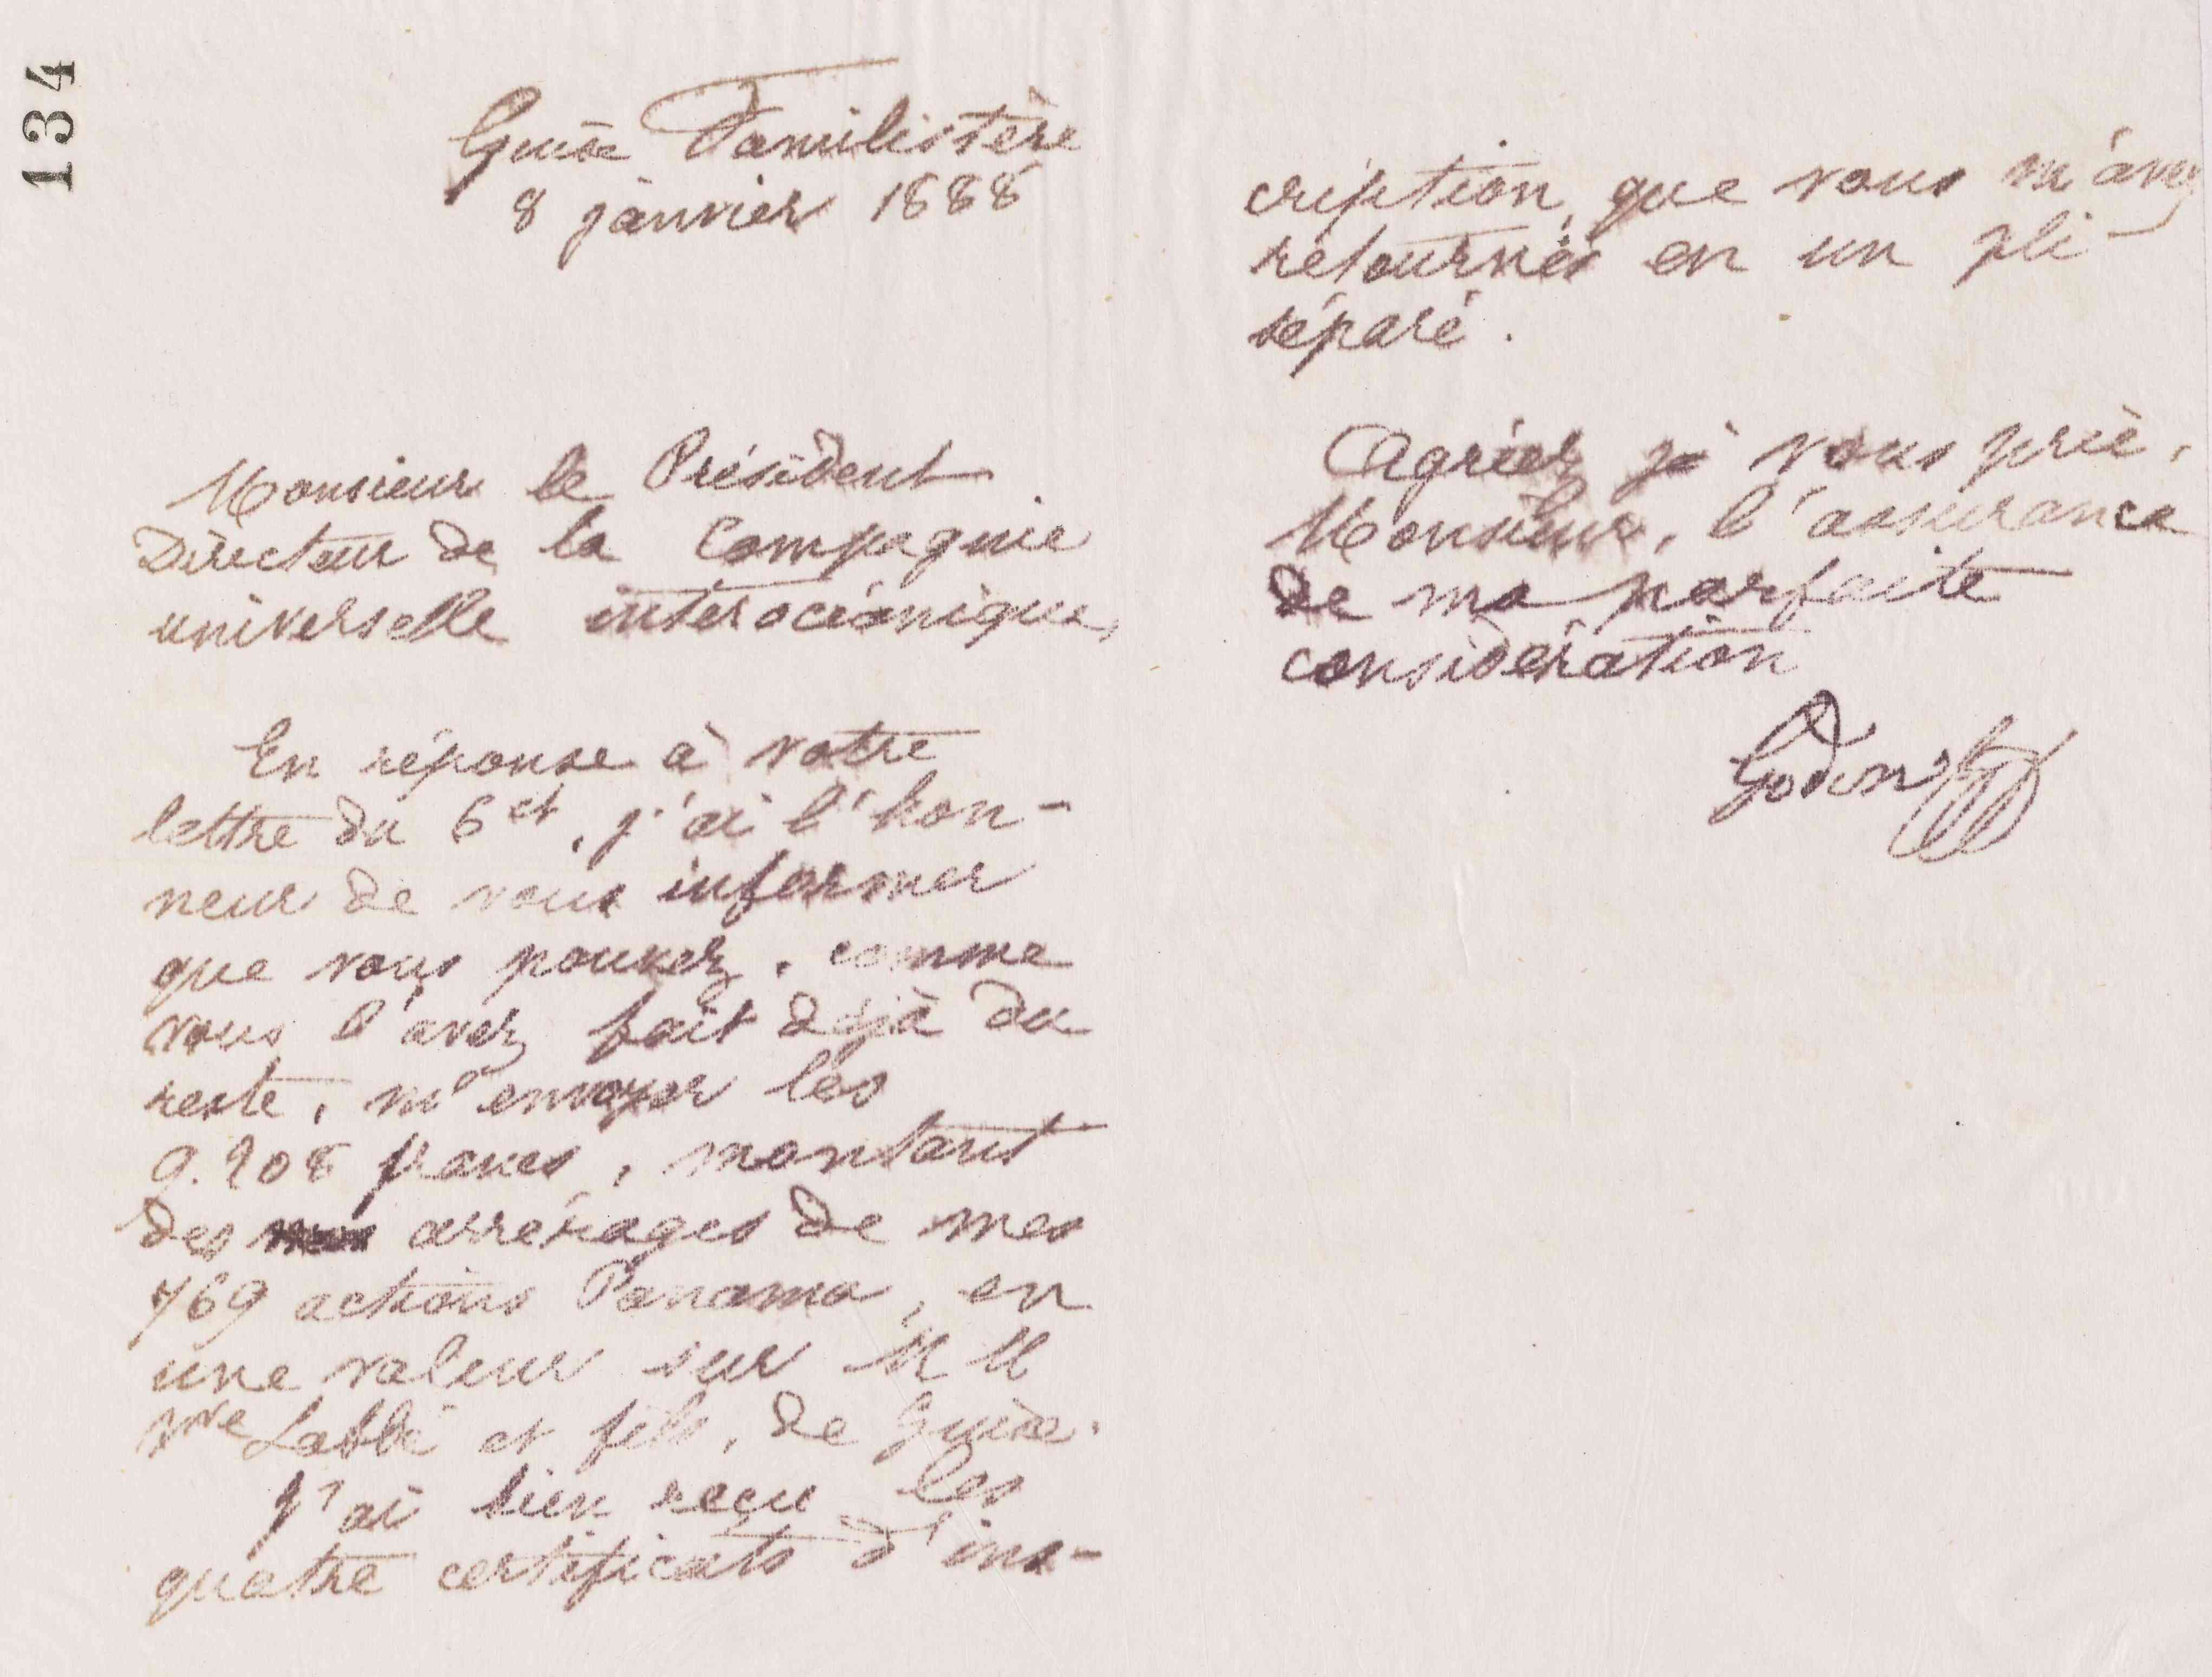 134
Guise Familistère
8 janvier 1888
Monsieur le Président
Directeur de la Compagnie
universelle interocéanique,
En réponse à votre
lettre du 6 ct, j'ai l'hon-
neur de vous informer
que vous pouvez, comme
vous l'avez fait déjà du
reste, m'envoyer les
9.208 francs, montant
des arrérages de mes
769 actions Panama, en
une valeur sur MM
Vve Labbé et fils, de Guise.
J'ai bien reçu les
quatre certificats d'ins-
cription, que vous m'avez
retournés en un pli
séparé.
Agréez je vous prie,
Monsieur, l'assurance
de ma parfaite
considération
Godin